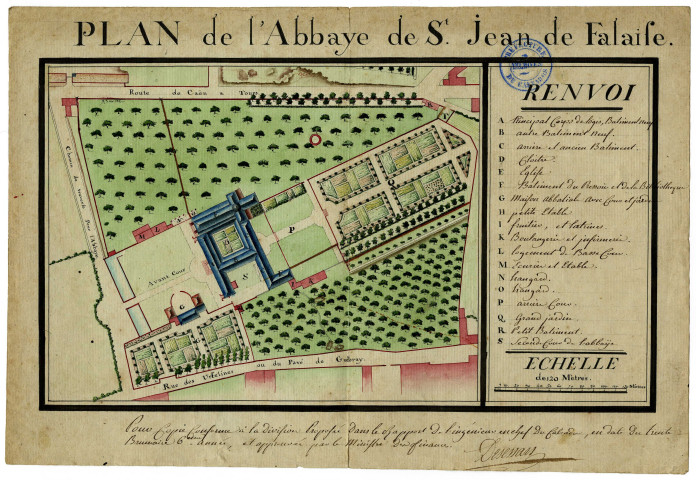 PLAN de l'Abbaye de St. Jean de Falaise.
PREFECTURE
Route de Caën a Tours
Chemin de
Avant Cour
Rue des Urselines ou du Pavé de Guibray
M L
P
S
G
RENVOI
A Principal Corps de logis, Batiment neuf
B autre Batiment neuf.
C ancien et ancien Batiment.
D Cloitre
E Eglise
F Batiment du Pressoir et de la Bibliotheque
G Maison abbatiale avec Cour et jardin
H petite Etable
I fruitier, et Latrines
K Boulangerie et infirmerie
L logement de Basse Cour
M Ecurie et Etable
N hangard
O hangard
P ancien Cour
Q Grand jardin
R Petit Batiment
S Seconde Cour de l'abbaye
ECHELLE
de 120 Mètres
Pour Copie Conforme à la division Proposée dans le Rapport de l'ingenieur en chef du Calvados, en date du trente
Brumaire 6.e année, et approuvée par le Ministre des finances